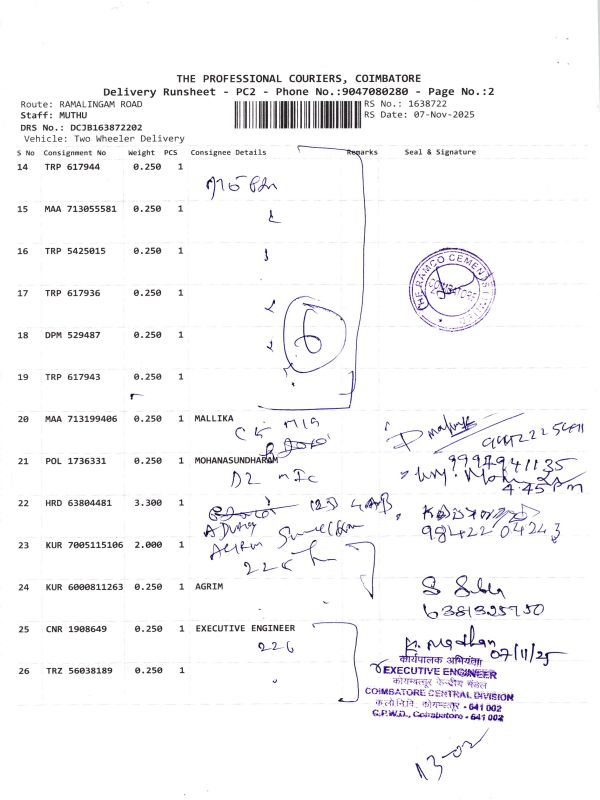 THE PROFESSIONAL COURIERS, COIMBATORE
Delivery Runsheet - PC2 - Phone No.:9047080280 - Page No.:2
Route: RAMALINGAM ROAD
RS No.: 1638722
Staff: MUTHU
RS Date: 07-Nov-2025
DRS No.: DCJB163872202
Vehicle: Two Wheeler Delivery
S No Consignment No Weight PCS Consignee Details Remarks Seal & Signature
14 TRP 617944 0.250 1
15 MAA 713055581 0.250 1
16 TRP 5425015 0.250 1
THE RAMCO CEMENTS LIMITED
COIMBATORE
17 TRP 617936 0.250 1
18 DPM 529487 0.250 1
6
19 TRP 617943 0.250 1
20 MAA 713199406 0.250 1 MALLIKA
21 POL 1736331 0.250 1 MOHANASUNDHARAM
9994941135
4.45 Pm
22 HRD 63804481 3.300 1
98422 04243
23 KUR 7005115106 2.000 1
226
24 KUR 6000811263 0.250 1 AGRIM
25 CNR 1908649 0.250 1 EXECUTIVE ENGINEER
226
07/11/25
कार्यपालक अभियंता
EXECUTIVE ENGINEER
26 TRZ 56038189 0.250 1
कोयम्बत्तूर केन्द्रीय मंडल
COIMBATORE CENTRAL DIVISION
के.लो.नि.वि., कोयम्बत्तूर - 641 002
C.P.W.D., Coimbatore - 641 002
13-02